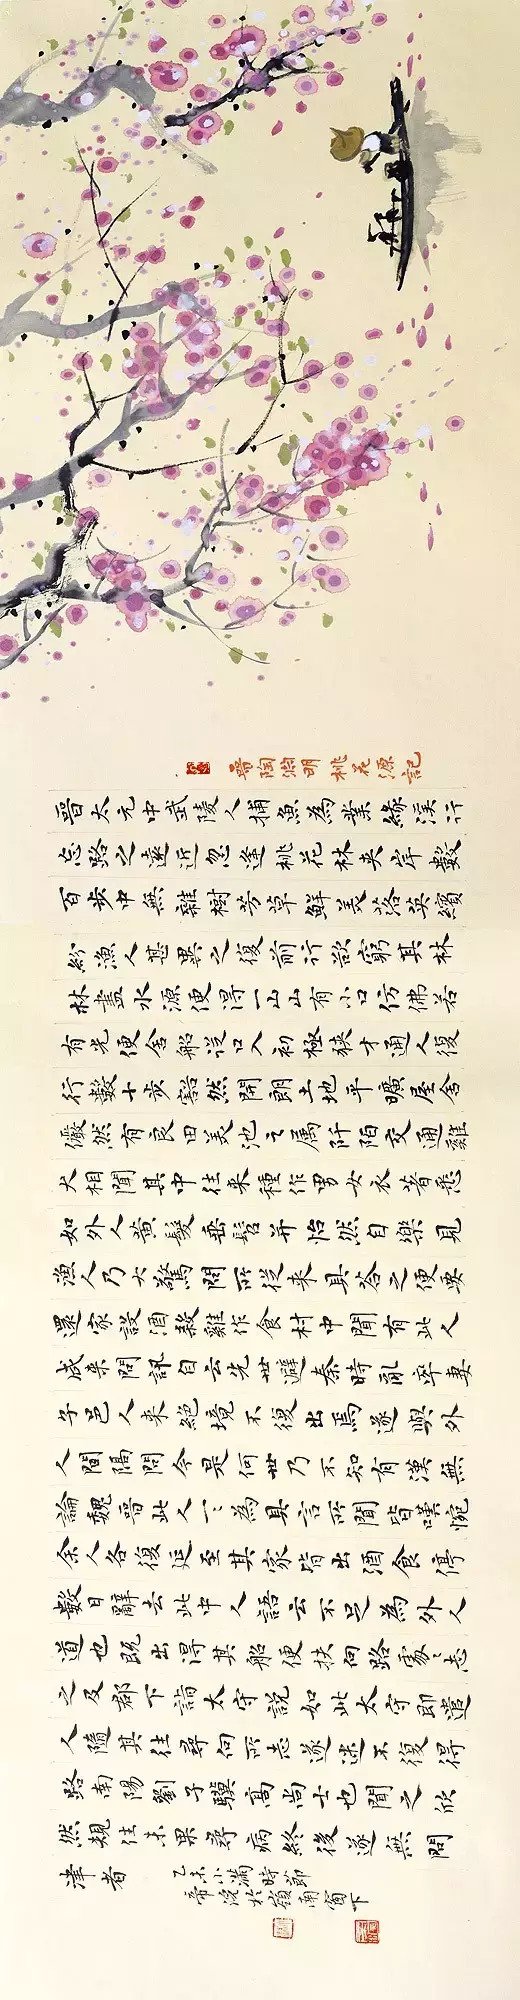 陶渊明桃花源記
晉太元中武陵人捕魚為業緣溪行
忘路之遠近忽逢桃花林夾岸數
百步中無雜樹芳草鮮美落英繽
紛漁人甚異之復前行欲窮其林
林盡水源便得一山山有小口仿佛若
有光便舍船從口入初極狹才通人復
行數十步豁然開朗土地平曠屋舍
儼然有良田美池之属阡陌交通雞
犬相聞其中往来種作男女衣著悉
如外人黃髮垂髫并怡然自樂見
漁人乃大驚問所從来具答之便要
還家設酒殺雞作食村中聞有此人
咸来問訊自云先世避秦時亂率妻
子邑人来絕境不復出焉遂與外
人間隔問今是何世乃不知有漢無
論魏晉此人一〻為具言所聞皆嘆惋
余人各復延至其家皆出酒食停
數日辭去此中人語云不足為外人
道也既出得其船便扶向路處〻志
之及郡下詣太守説如此太守即遣
人隨其往尋向所志遂迷不復得
路南陽劉子驥高尚士也聞之欣
然規往未果尋病終後遂無問
津者
乙未小滿時節
帝浣於嶺南窗下